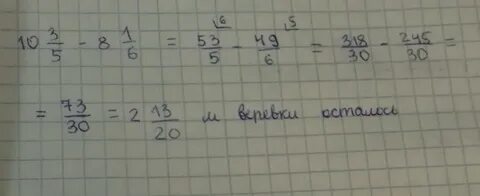 10 3/5 - 8 1/6 = 53/5 (6 - 49/6 (5 = 318/30 - 245/30 =
= 73/30 = 2 13/20 м веревки осталось